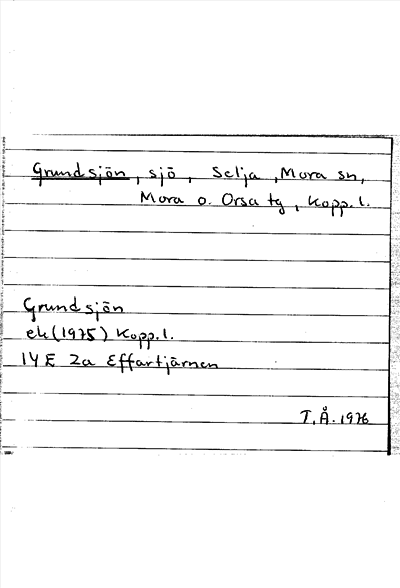 Grundsjön, sjö, Selja, Mora sn,
Mora o. Orsa tg, Kopp.l.
Grundsjön
ek (1975) Kopp.l.
14 E 2a Effartjärnen
T.Å. 1976